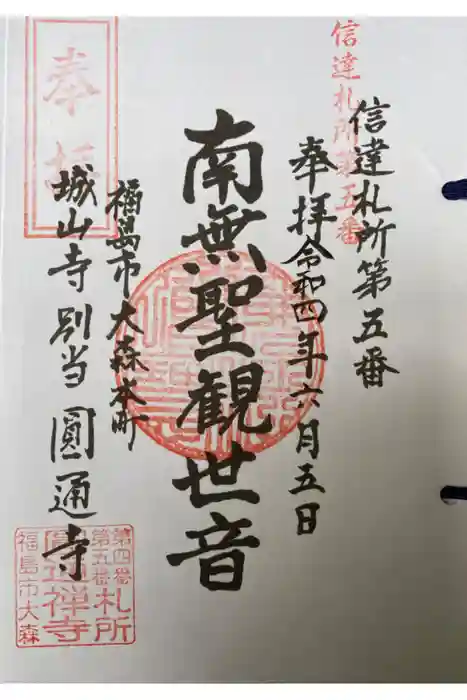 信達札所第五番
信達札所第五番
奉拝令和四年六月五日
南無聖観世音
福島市大森本町
奉拝
城山寺別当圓通寺
第四番
第五番札所
圓通禅寺
福島市大森